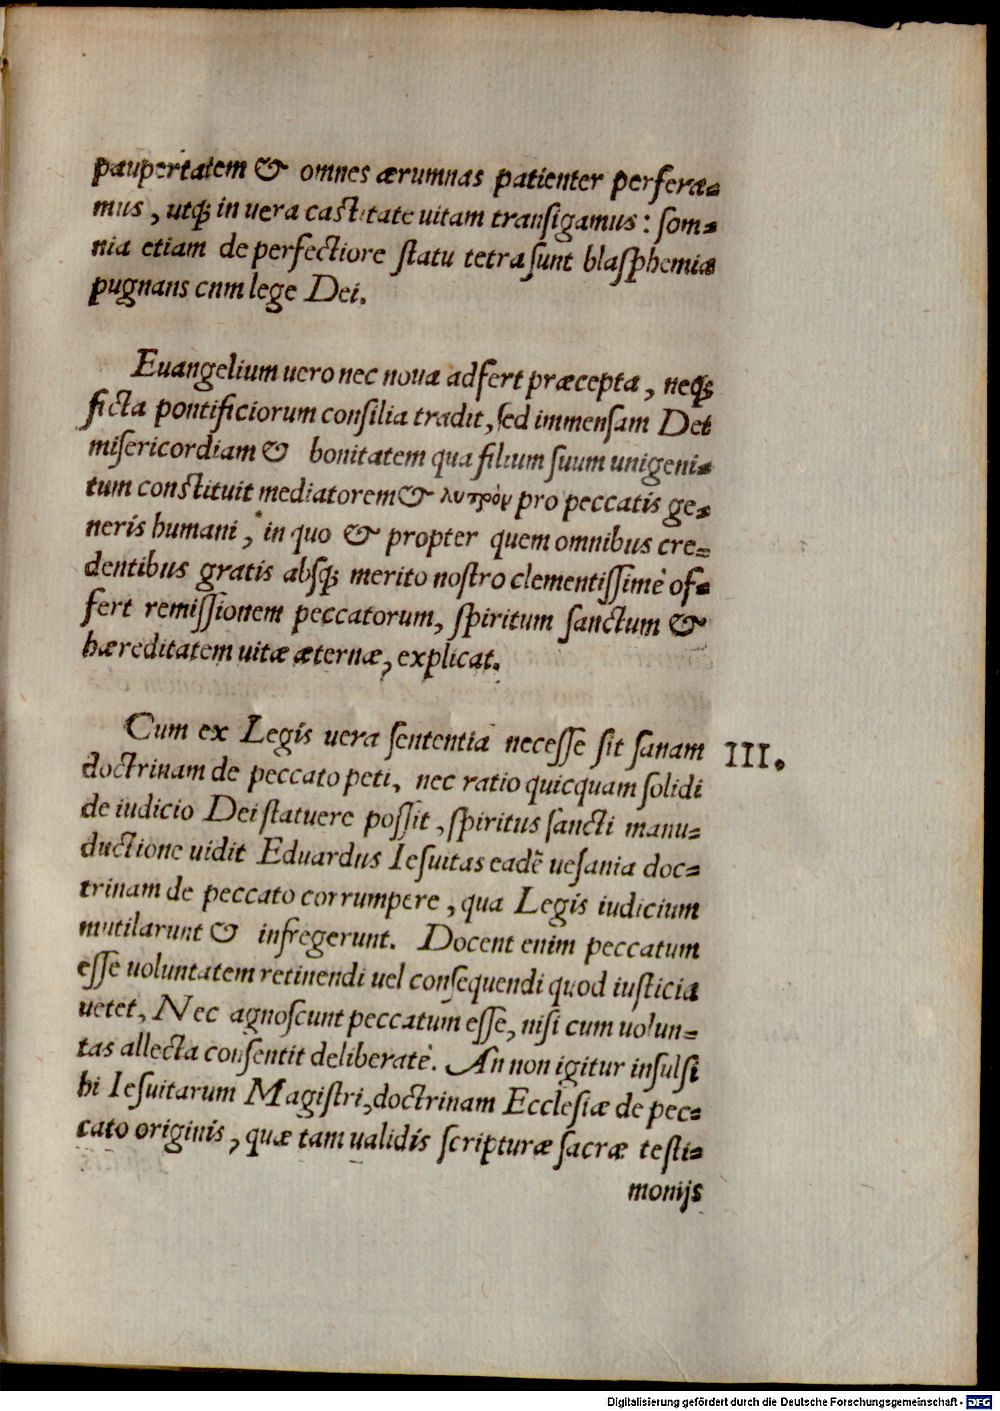 paupertatem & omnes ærumnas patienter perfera=
mus, utq; in uera castitate uitam transigamus: som=
nia etiam de perfectiore statu tetra sunt blasphemia
pugnans cnm lege Dei.
Euangelium uero nec noua adfert præcepta, neq;
ficta pontificiorum consilia tradit, sed immensam Dei
misericordiam & bonitatem qua filium suum unigeni=
tum constituit mediatorem & λυτρὸν pro peccatis ge=
neris humani, in quo & propter quem omnibus cre=
dentibus gratis absq; merito nostro clementissimè of=
fert remissionem peccatorum, spiritum sanctum &
hæreditatem uitæ æternæ, explicat.
Cum ex Legis uera sententia necesse sit sanam III.
doctrinam de peccato peti, nec ratio quicquam solidi
de iudicio Dei statuere possit, spiritus sancti manu=
ductione uidit Eduardus Iesuitas eadē uesania doc=
trinam de peccato corrumpere, qua Legis iudicium
mutilarunt & infregerunt. Docent enim peccatum
esse uoluntatem retinendi uel consequendi quod iusticia
uetet, Nec agnoscunt peccatum esse, nisi cum uolun=
tas allecta consentit deliberatè. An non igitur insulsi
hi Iesuitarum Magistri, doctrinam Ecclesiæ de pec=
cato originis, quæ tam ualidis scripturæ sacræ testi=
monijs
Digitalisierung gefördert durch die Deutsche Forschungsgemeinschaft - DFG